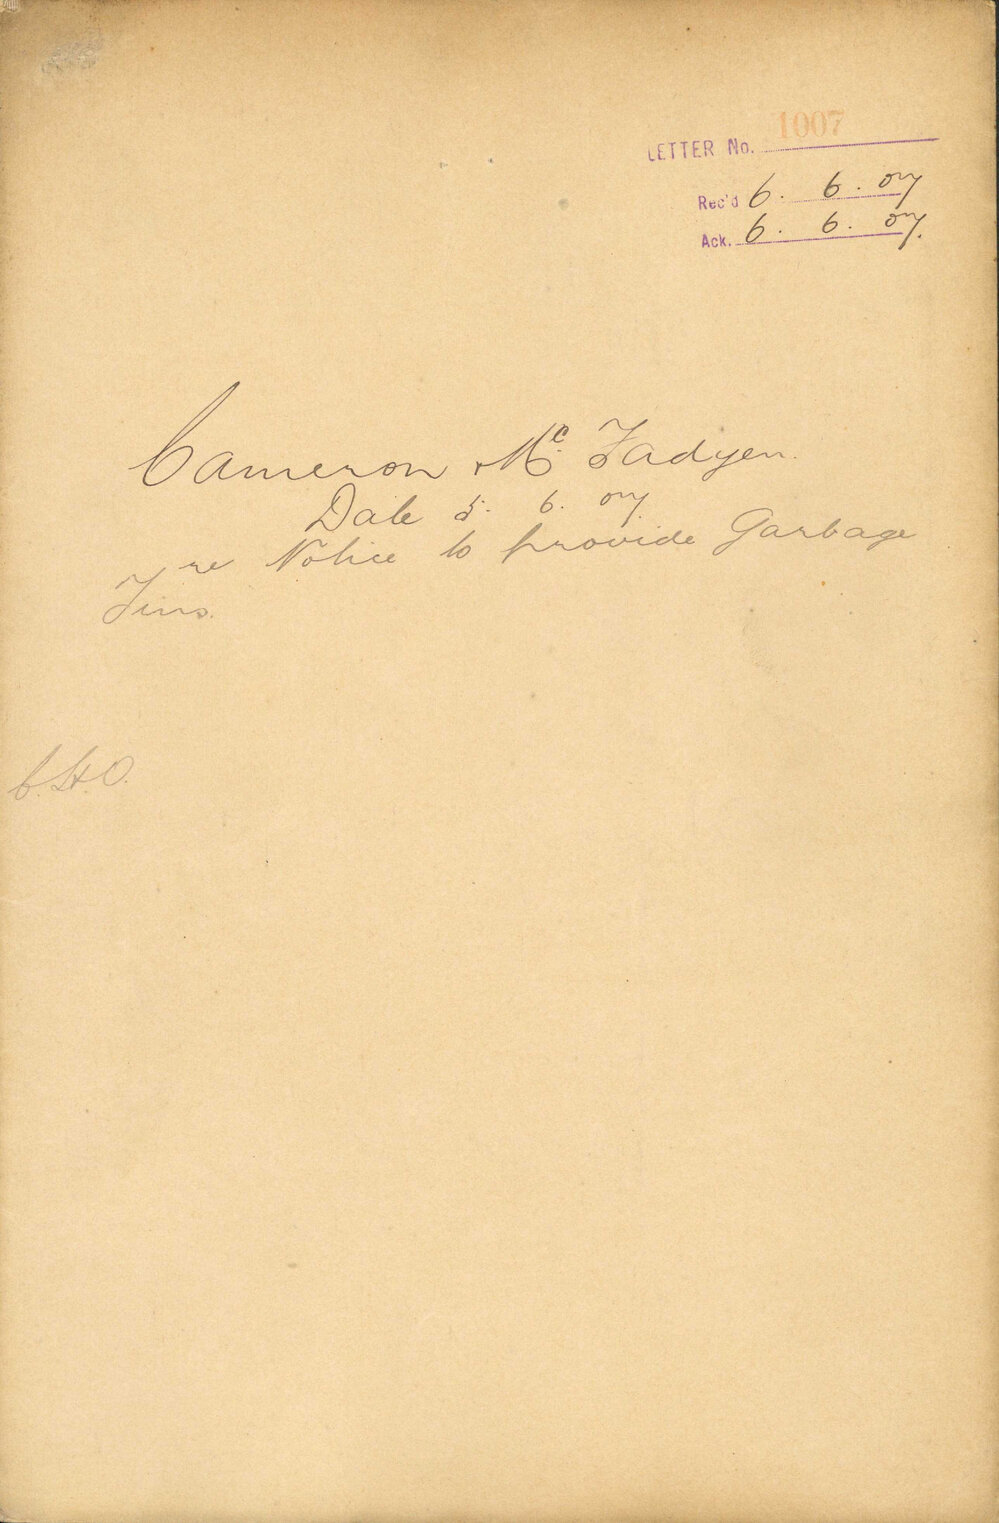 LETTER No. 1007
Rec'd 6. 6. 07
Ack. 6. 6. 07.
Cameron & Mc Fadyen.
Date 5. 6. 07
re Notice to provide Garbage
Tins.
C.H.O.